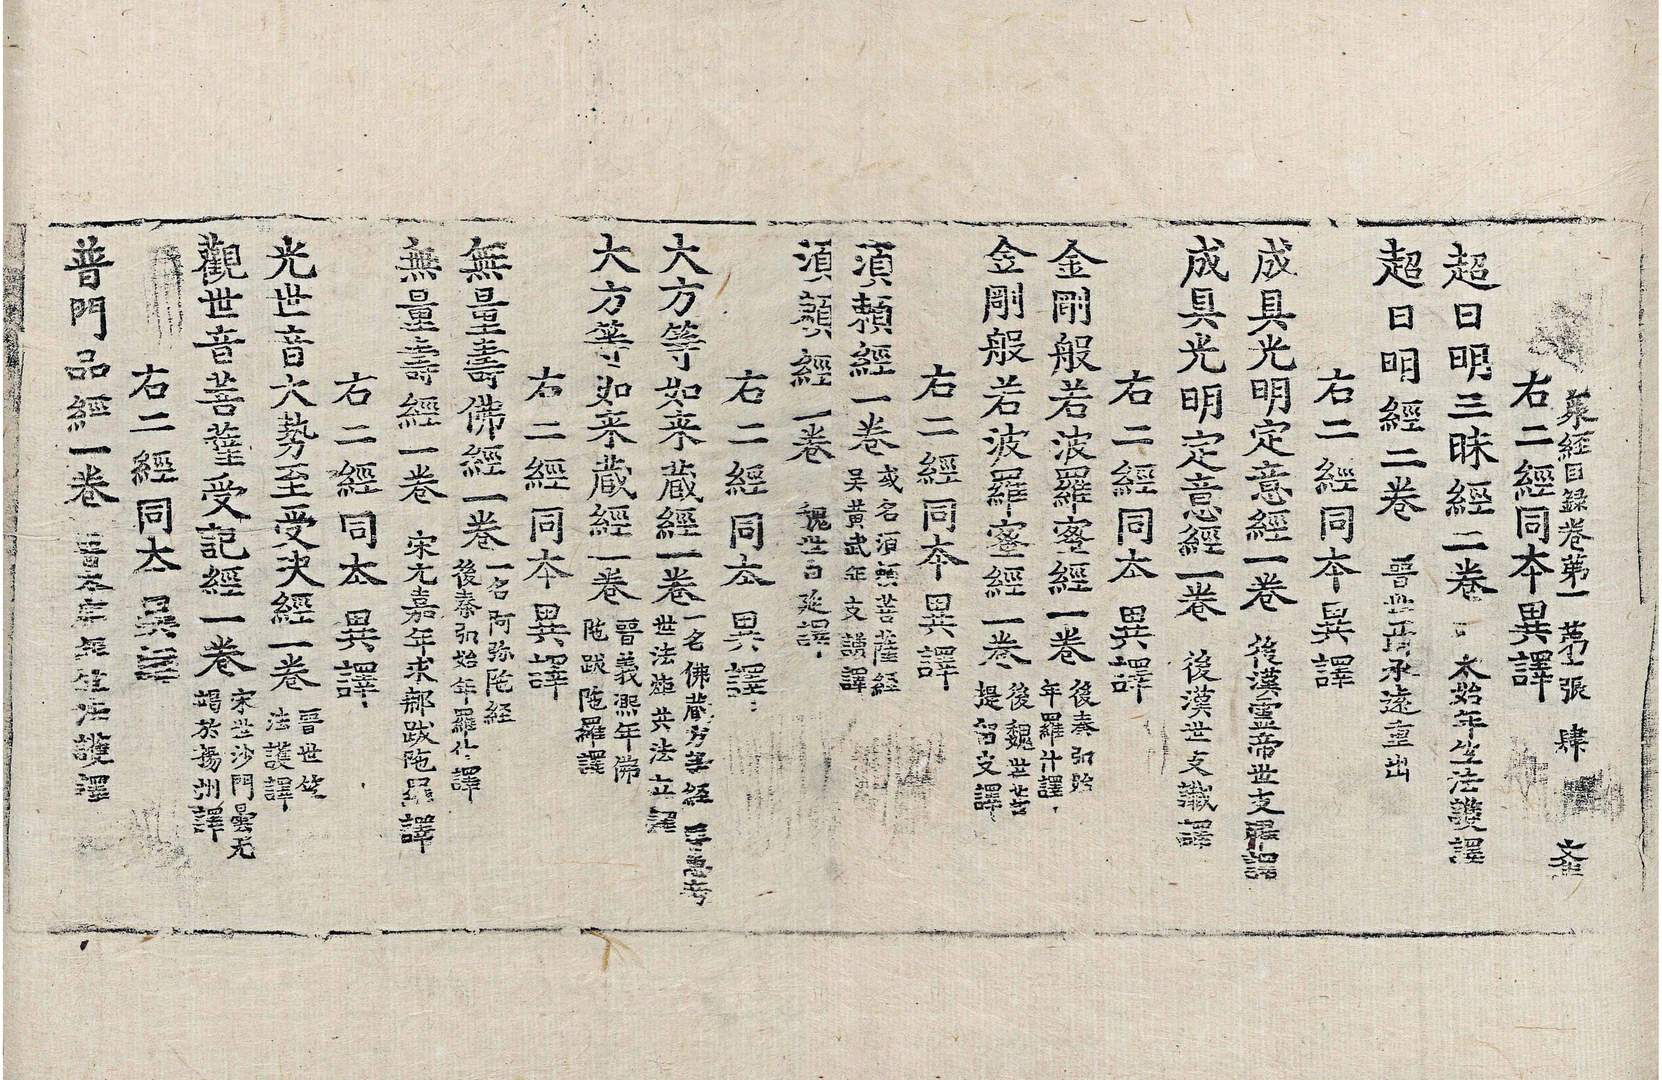 眾經目錄卷第一 第十張 肆
右二經同本異譯
超日明三昧經二卷 太始年竺法護譯
超日明經二卷 晉世聶承遠重出
右二經同本異譯
成具光明定意經一卷 後漢靈帝世支曜譯
成具光明定意經一卷 後漢世支讖譯
右二經同本異譯
金剛般若波羅蜜經一卷 後秦弘始
年羅什譯
金剛般若波羅蜜經一卷 後魏世菩
提留支譯
右二經同本異譯
須賴經一卷 或名須賴菩薩經
吳黃武年支謙譯
須賴經一卷 魏世白延譯
右二經同本異譯
大方等如来藏經一卷 一名佛藏方等經
世法炬共法立譯
大方等如来藏經一卷 晉義熙年佛
陁跋陁羅譯
右二經同本異譯
無量壽佛經一卷 一名阿弥陁經
後秦弘始年羅什譯
無量壽經一卷 宋元嘉年求那跋陁羅譯
右二經同本異譯
光世音大勢至受决經一卷 晉世竺
法護譯
觀世音菩薩受記經一卷 宋世沙門曇无
竭於揚州譯
右二經同本異譯
普門品經一卷 晉太康年竺法護譯